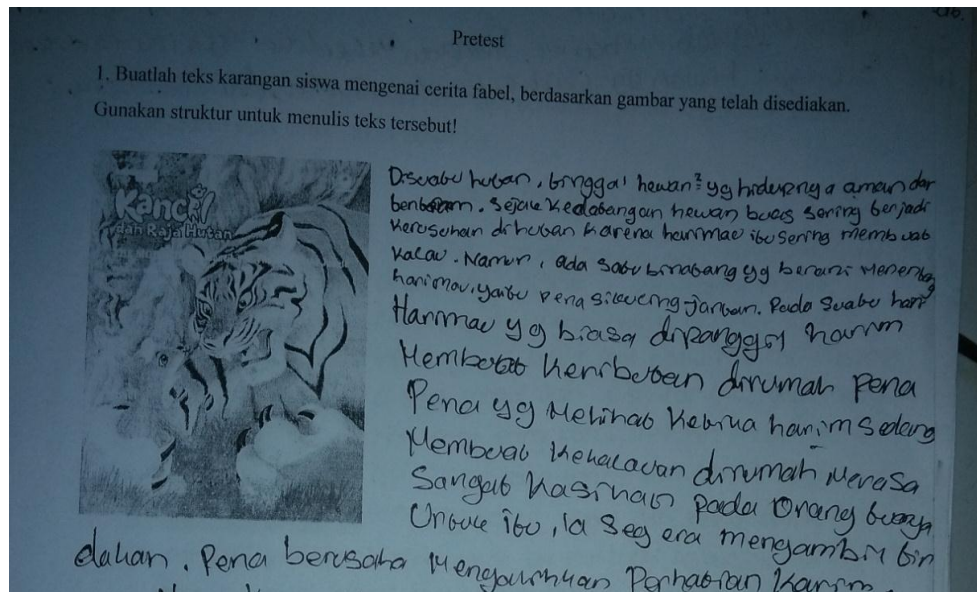 Pretest
1. Buatlah teks karangan siswa mengenai cerita fabel, berdasarkan gambar yang telah disediakan.
Gunakan struktur untuk menulis teks tersebut!
Kancil
dan Raja Hutan
Disuatu hutan, tinggal hewan² yg hidupnya aman dan
tentram. Sejak kedatangan hewan buas sering terjadi
Kerusuhan dihutan karena harimau itu sering membuat
Kacau. Namun, ada satu binatang yg berani menentang
harimau, yaitu pena sikucing jantan. Pada suatu hari
Harimau yg biasa dipanggil harim
Membuat keributan dirumah pena
Pena yg melihat ketika harim sedang
Membuat kekacauan dirumah merasa
Sangat kasihan pada orang tuanya
Untuk itu, ia segera mengambil tin
dakan. Pena berusaha mengalihkan perhatian harim